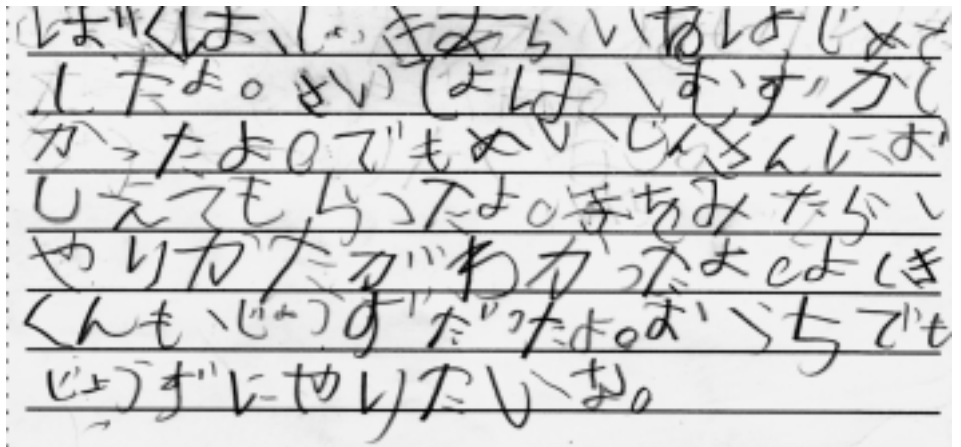 ぼくは、じゃきあらいねはじめて
したよ。さいしょは、むずかし
かったよ。でもめいじんさんにお
しえてもらったよ。きちみたらい
やりかたがわかったよ。よしき
くんも、じょうずだったよ。おうちでも
じょうずにやりたいな。